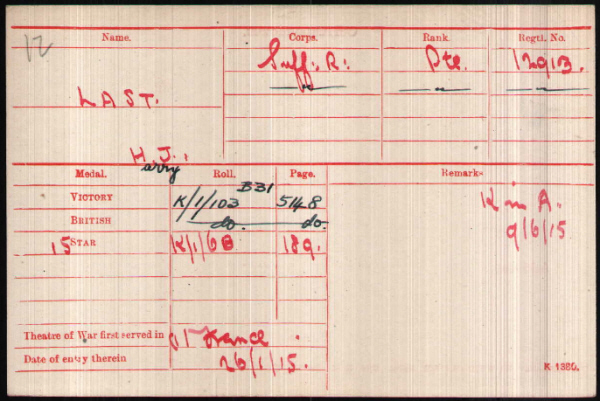 12
Name. Corps. Rank. Regtl. No.
Suff: R: Pte. 12913.
LAST.
H. J.
arry
Medal. Roll. Page. Remarks
VICTORY K/1/103 B31 5148 K in A.
BRITISH do. do. 9/6/15
15 STAR K/1/6B 189.
Theatre of War first served in (1) France
Date of entry therein 26/1/15.
K 1380.